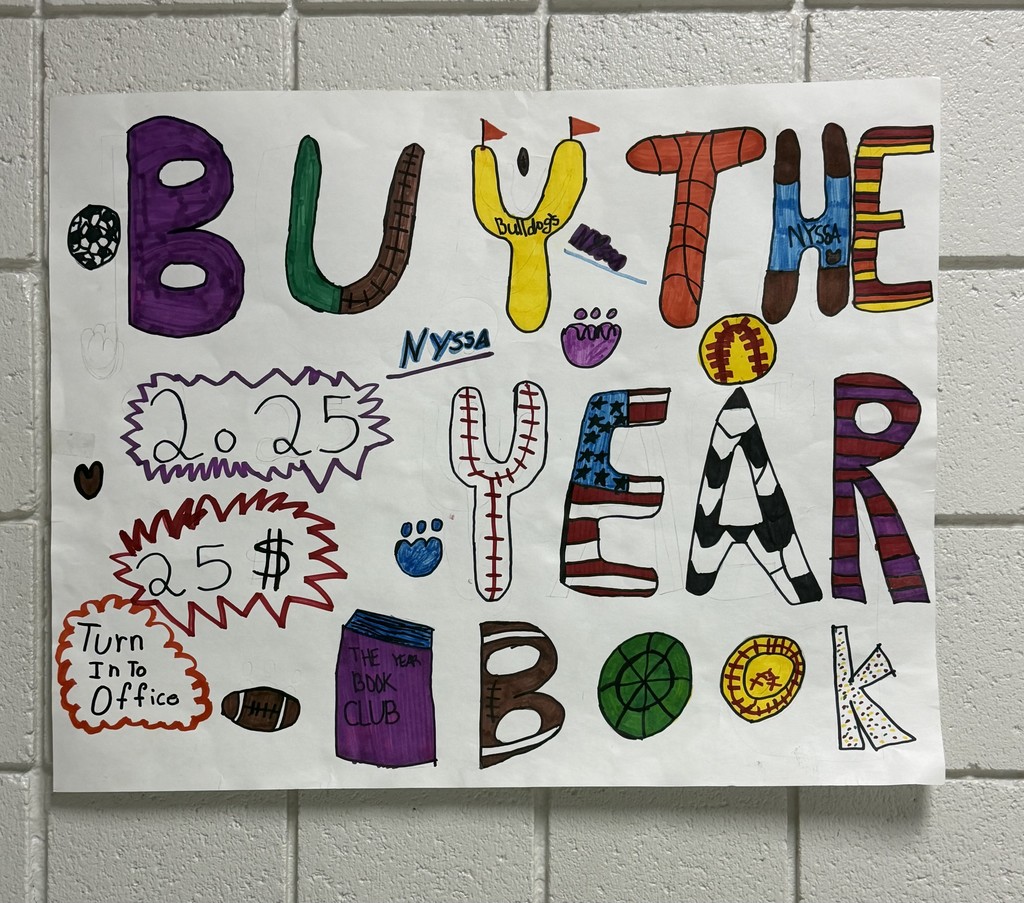 BUY THE
Bulldogs
Nyssa
NYSSA
NYSSA
2025
YEAR
25 $
Turn
In To
Office
THE YEAR
BOOK
CLUB
BOOK